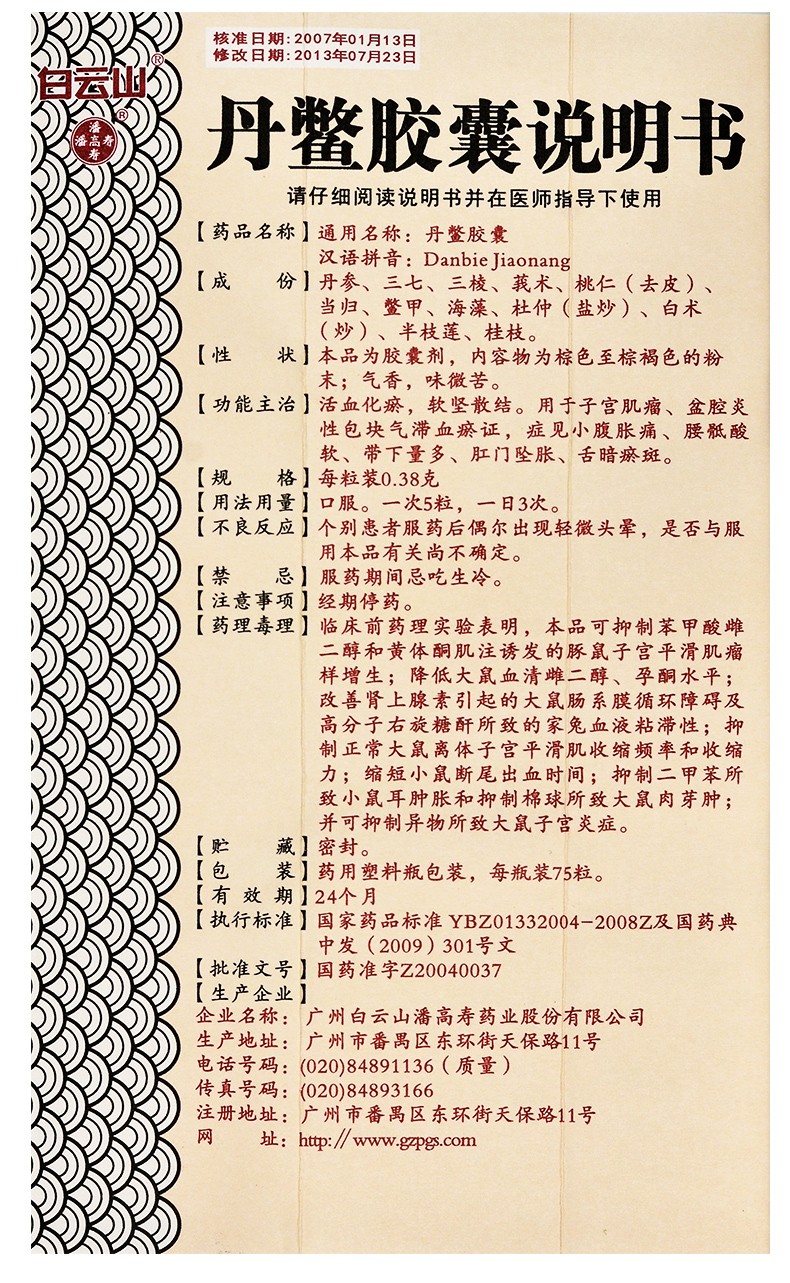 核准日期:2007年01月13日
修改日期:2013年07月23日
白云山®
®
潘高寿
丹鳖胶囊说明书
请仔细阅读说明书并在医师指导下使用
【药品名称】通用名称：丹鳖胶囊
汉语拼音：Danbie Jiaonang
【成份】丹参、三七、三棱、莪术、桃仁（去皮）、
当归、鳖甲、海藻、杜仲（盐炒）、白术
（炒）、半枝莲、桂枝。
【性状】本品为胶囊剂，内容物为棕色至棕褐色的粉
末；气香，味微苦。
【功能主治】活血化瘀，软坚散结。用于子宫肌瘤、盆腔炎
性包块气滞血瘀证，症见小腹胀痛、腰骶酸
软、带下量多、肛门坠胀、舌暗瘀斑。
【规格】每粒装0.38克
【用法用量】口服。一次5粒，一日3次。
【不良反应】个别患者服药后偶尔出现轻微头晕，是否与服
用本品有关尚不确定。
【禁忌】服药期间忌吃生冷。
【注意事项】经期停药。
【药理毒理】临床前药理实验表明，本品可抑制苯甲酸雌
二醇和黄体酮肌注诱发的豚鼠子宫平滑肌瘤
样增生；降低大鼠血清雌二醇、孕酮水平；
改善肾上腺素引起的大鼠肠系膜循环障碍及
高分子右旋糖酐所致的家兔血液粘滞性；抑
制正常大鼠离体子宫平滑肌收缩频率和收缩
力；缩短小鼠断尾出血时间；抑制二甲苯所
致小鼠耳肿胀和抑制棉球所致大鼠肉芽肿；
并可抑制异物所致大鼠子宫炎症。
【贮藏】密封。
【包装】药用塑料瓶包装，每瓶装75粒。
【有效期】24个月
【执行标准】国家药品标准 YBZ01332004-2008Z及国药典
中发（2009）301号文
【批准文号】国药准字Z20040037
【生产企业】
企业名称：广州白云山潘高寿药业股份有限公司
生产地址：广州市番禺区东环街天保路11号
电话号码：(020)84891136（质量）
传真号码：(020)84893166
注册地址：广州市番禺区东环街天保路11号
网址：http://www.gzpgs.com